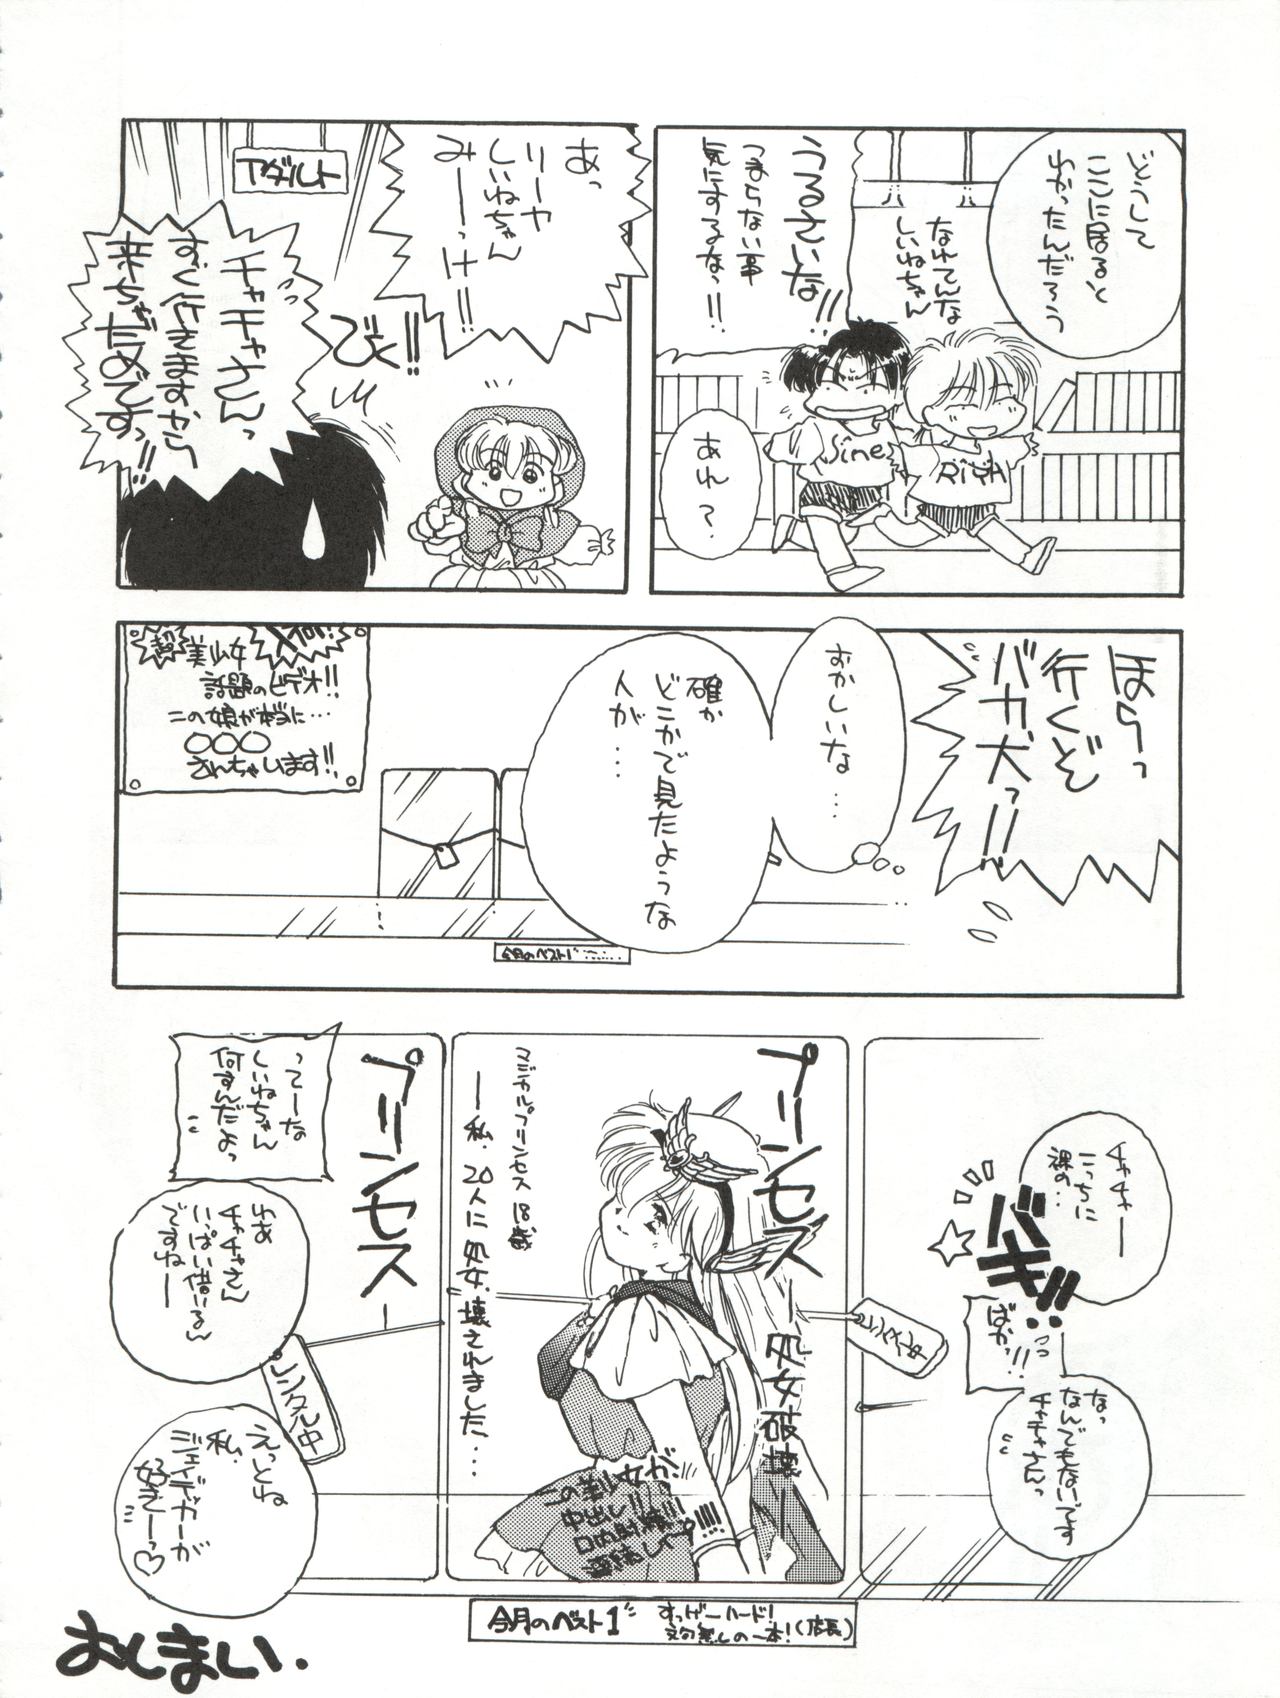 どうして
ここに居ると
わかったんだろう
なれてんな
しいねちゃん
うるさいな!!
つまらない事
気にするなっ!!
あれ?
Sine
Riya
あっ
リーヤ
しいねちゃん
みーっけ!!
アダルト
びくっ!!
チャチャさんっ
すぐ行きますから
来ちゃだめですっ!!
ほらっ
行くぞ
バカ犬っ!!
おかしいな…
確か
どこかで見たような
人が…
今月のベスト1
チャチャー
こっちに
裸の…
バキ!!
ばかっ!!
なっ
なんでもないです
チャチャさんっ
レンタル中
プリンセス
マジカルプリンセス 18歳
プリンセス
ってーな
しいねちゃん
何すんだよっ
わぁ
チャチャさん
いっぱい借いるん
ですねー
レンタル中
えっとね
私、
ジェイデッカーが
好きーっ♡
今月のベスト1
すっげーハード!
文句無しの一本!(店長)
おしまい.